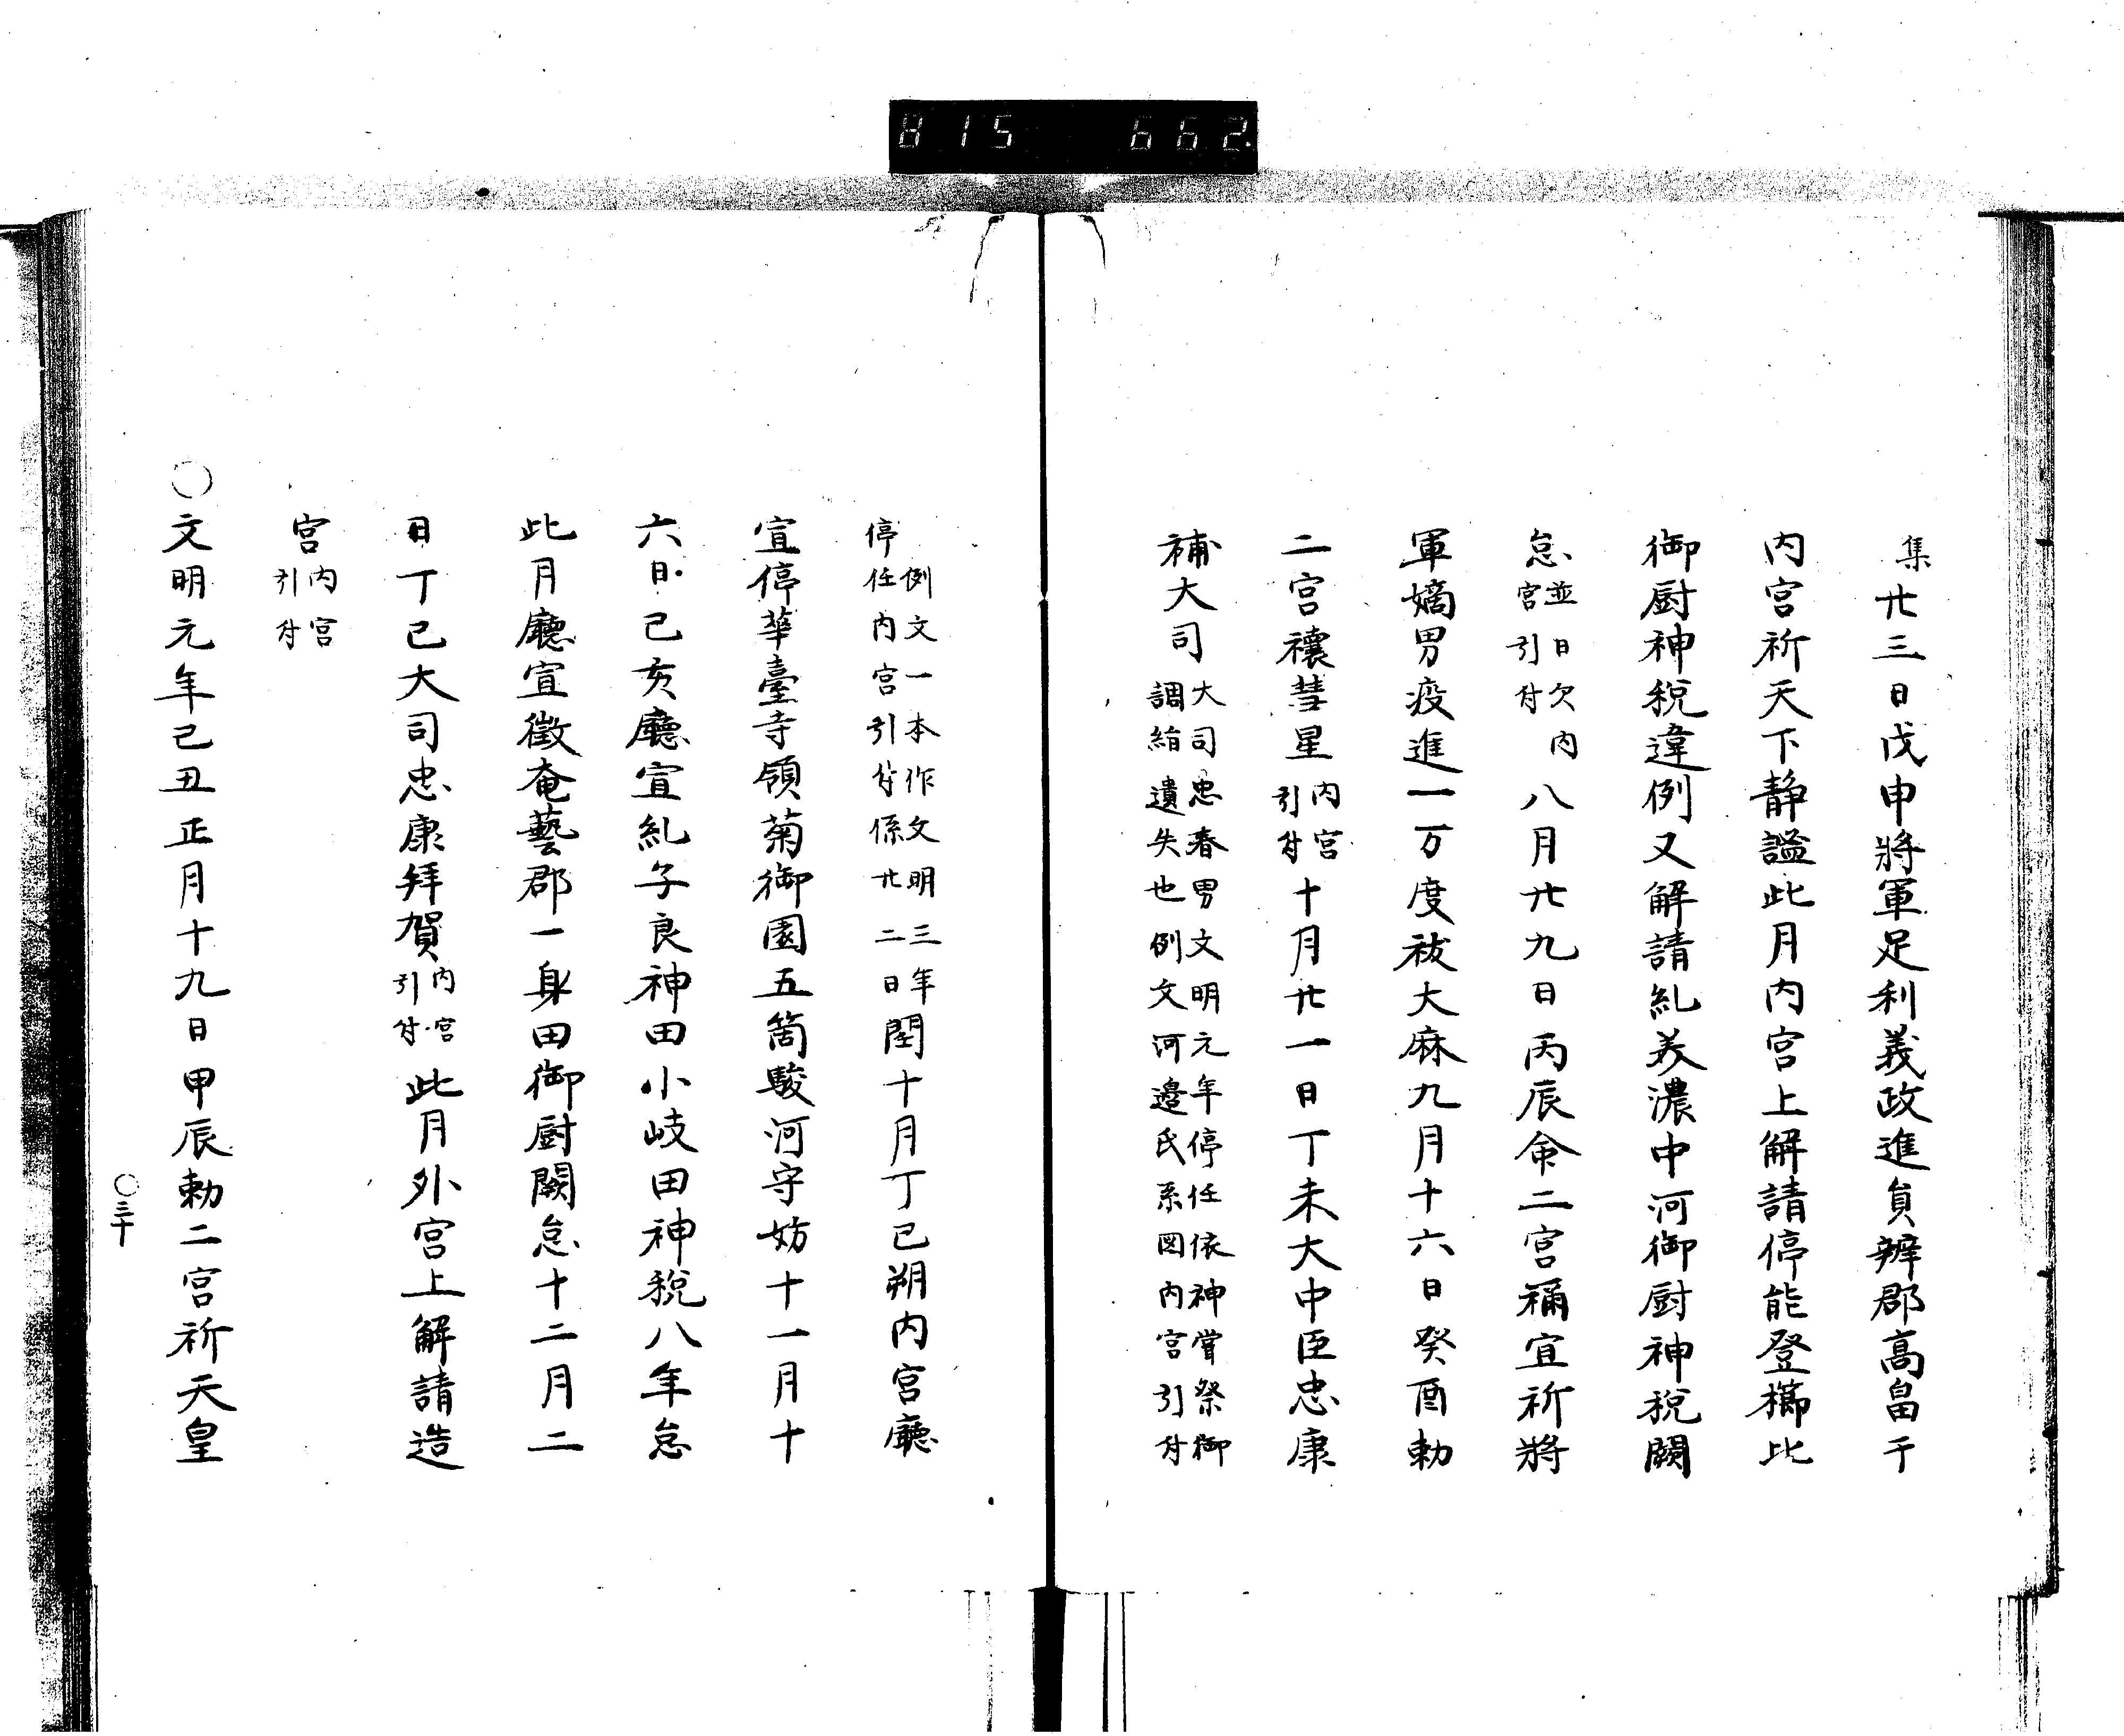 815 662.
集廿三日戊申將軍足利義政進負辨郡高畠于
内宮祈天下静謐此月内宮上解請停能登櫛比
御厨神税違例又解請糺美濃中河御厨神税闕
怠並日欠内宮引付八月廿九日丙辰命二宮禰宜祈將
軍嫡男疫進一万度祓大麻九月十六日癸酉勅
二宮禳彗星内宮引付十月廿一日丁未大中臣忠康
補大司大司忠春男文明元年停任依神嘗祭御
調絹遺失也例文河邉氏系図内宮引付
停例文一本作文明三年
任内宮引付係廿二日閏十月丁巳朔内宮廳
宣停華臺寺領菊御園五箇駿河守妨十一月十
六日己亥廳宣糺子良神田小岐田神税八年怠
此月廳宣徴奄藝郡一身田御厨闕怠十二月二
日丁巳大司忠康拜賀内宮引付此月外宮上解請造
宮内宮引付
〇文明元年己丑正月十九日甲辰勅二宮祈天皇
〇三十